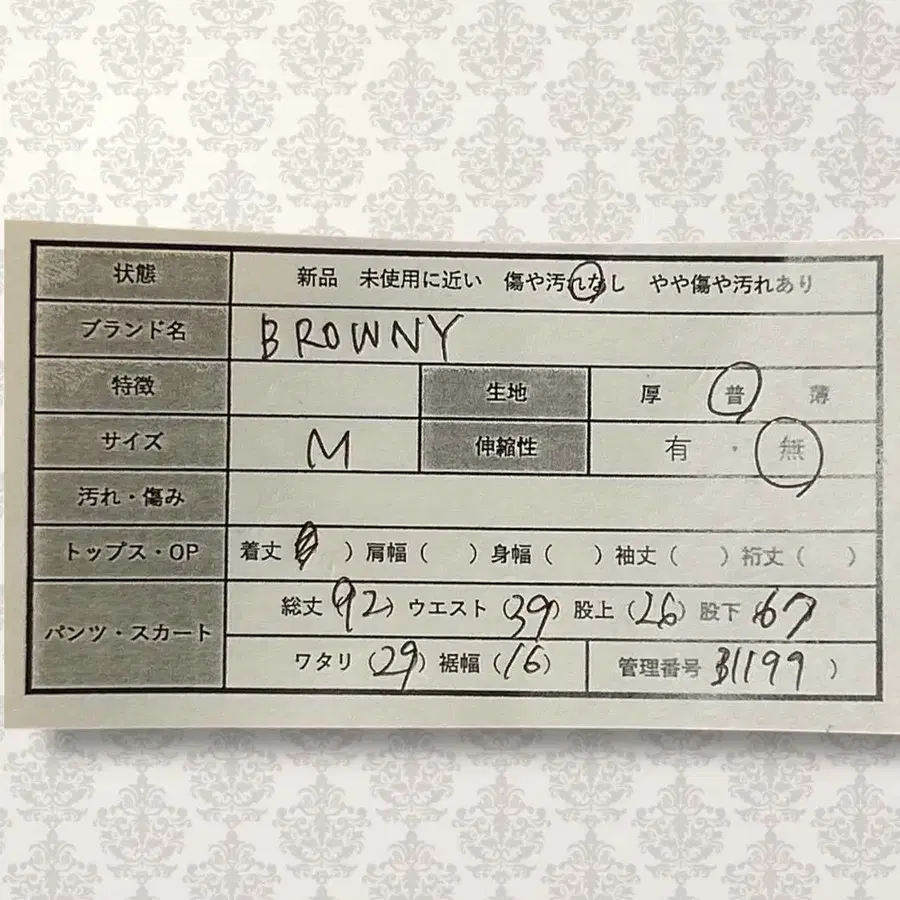 状態 新品 未使用に近い 傷や汚れなし やや傷や汚れあり
ブランド名 BROWNY
特徴 生地 厚 普 薄
サイズ M 伸縮性 有 ・ 無
汚れ・傷み
トップス・OP 着丈 ( ) 肩幅 ( ) 身幅 ( ) 袖丈 ( ) 裄丈 ( )
パンツ・スカート 総丈 (92) ウエスト (39) 股上 (26) 股下 67
ワタリ (29) 裾幅 (16) 管理番号 B1199 )